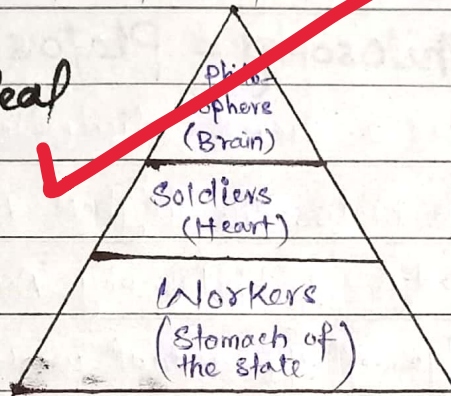 eal
Philo-
sophers
(Brain)
Soldiers
(Heart)
Workers
(Stomach of
the state)